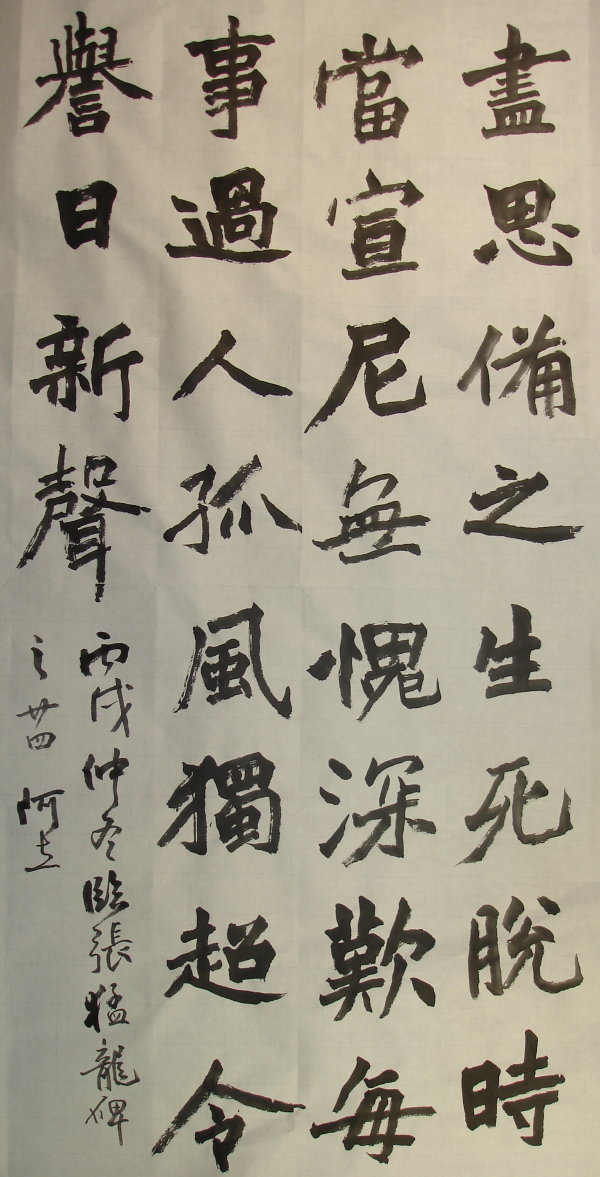 盡思備之生死脫時
當宣尼無愧深歎每
事過人孤風獨超令
譽日新聲
丙戌仲冬臨張猛龍碑
之廿四 阿立